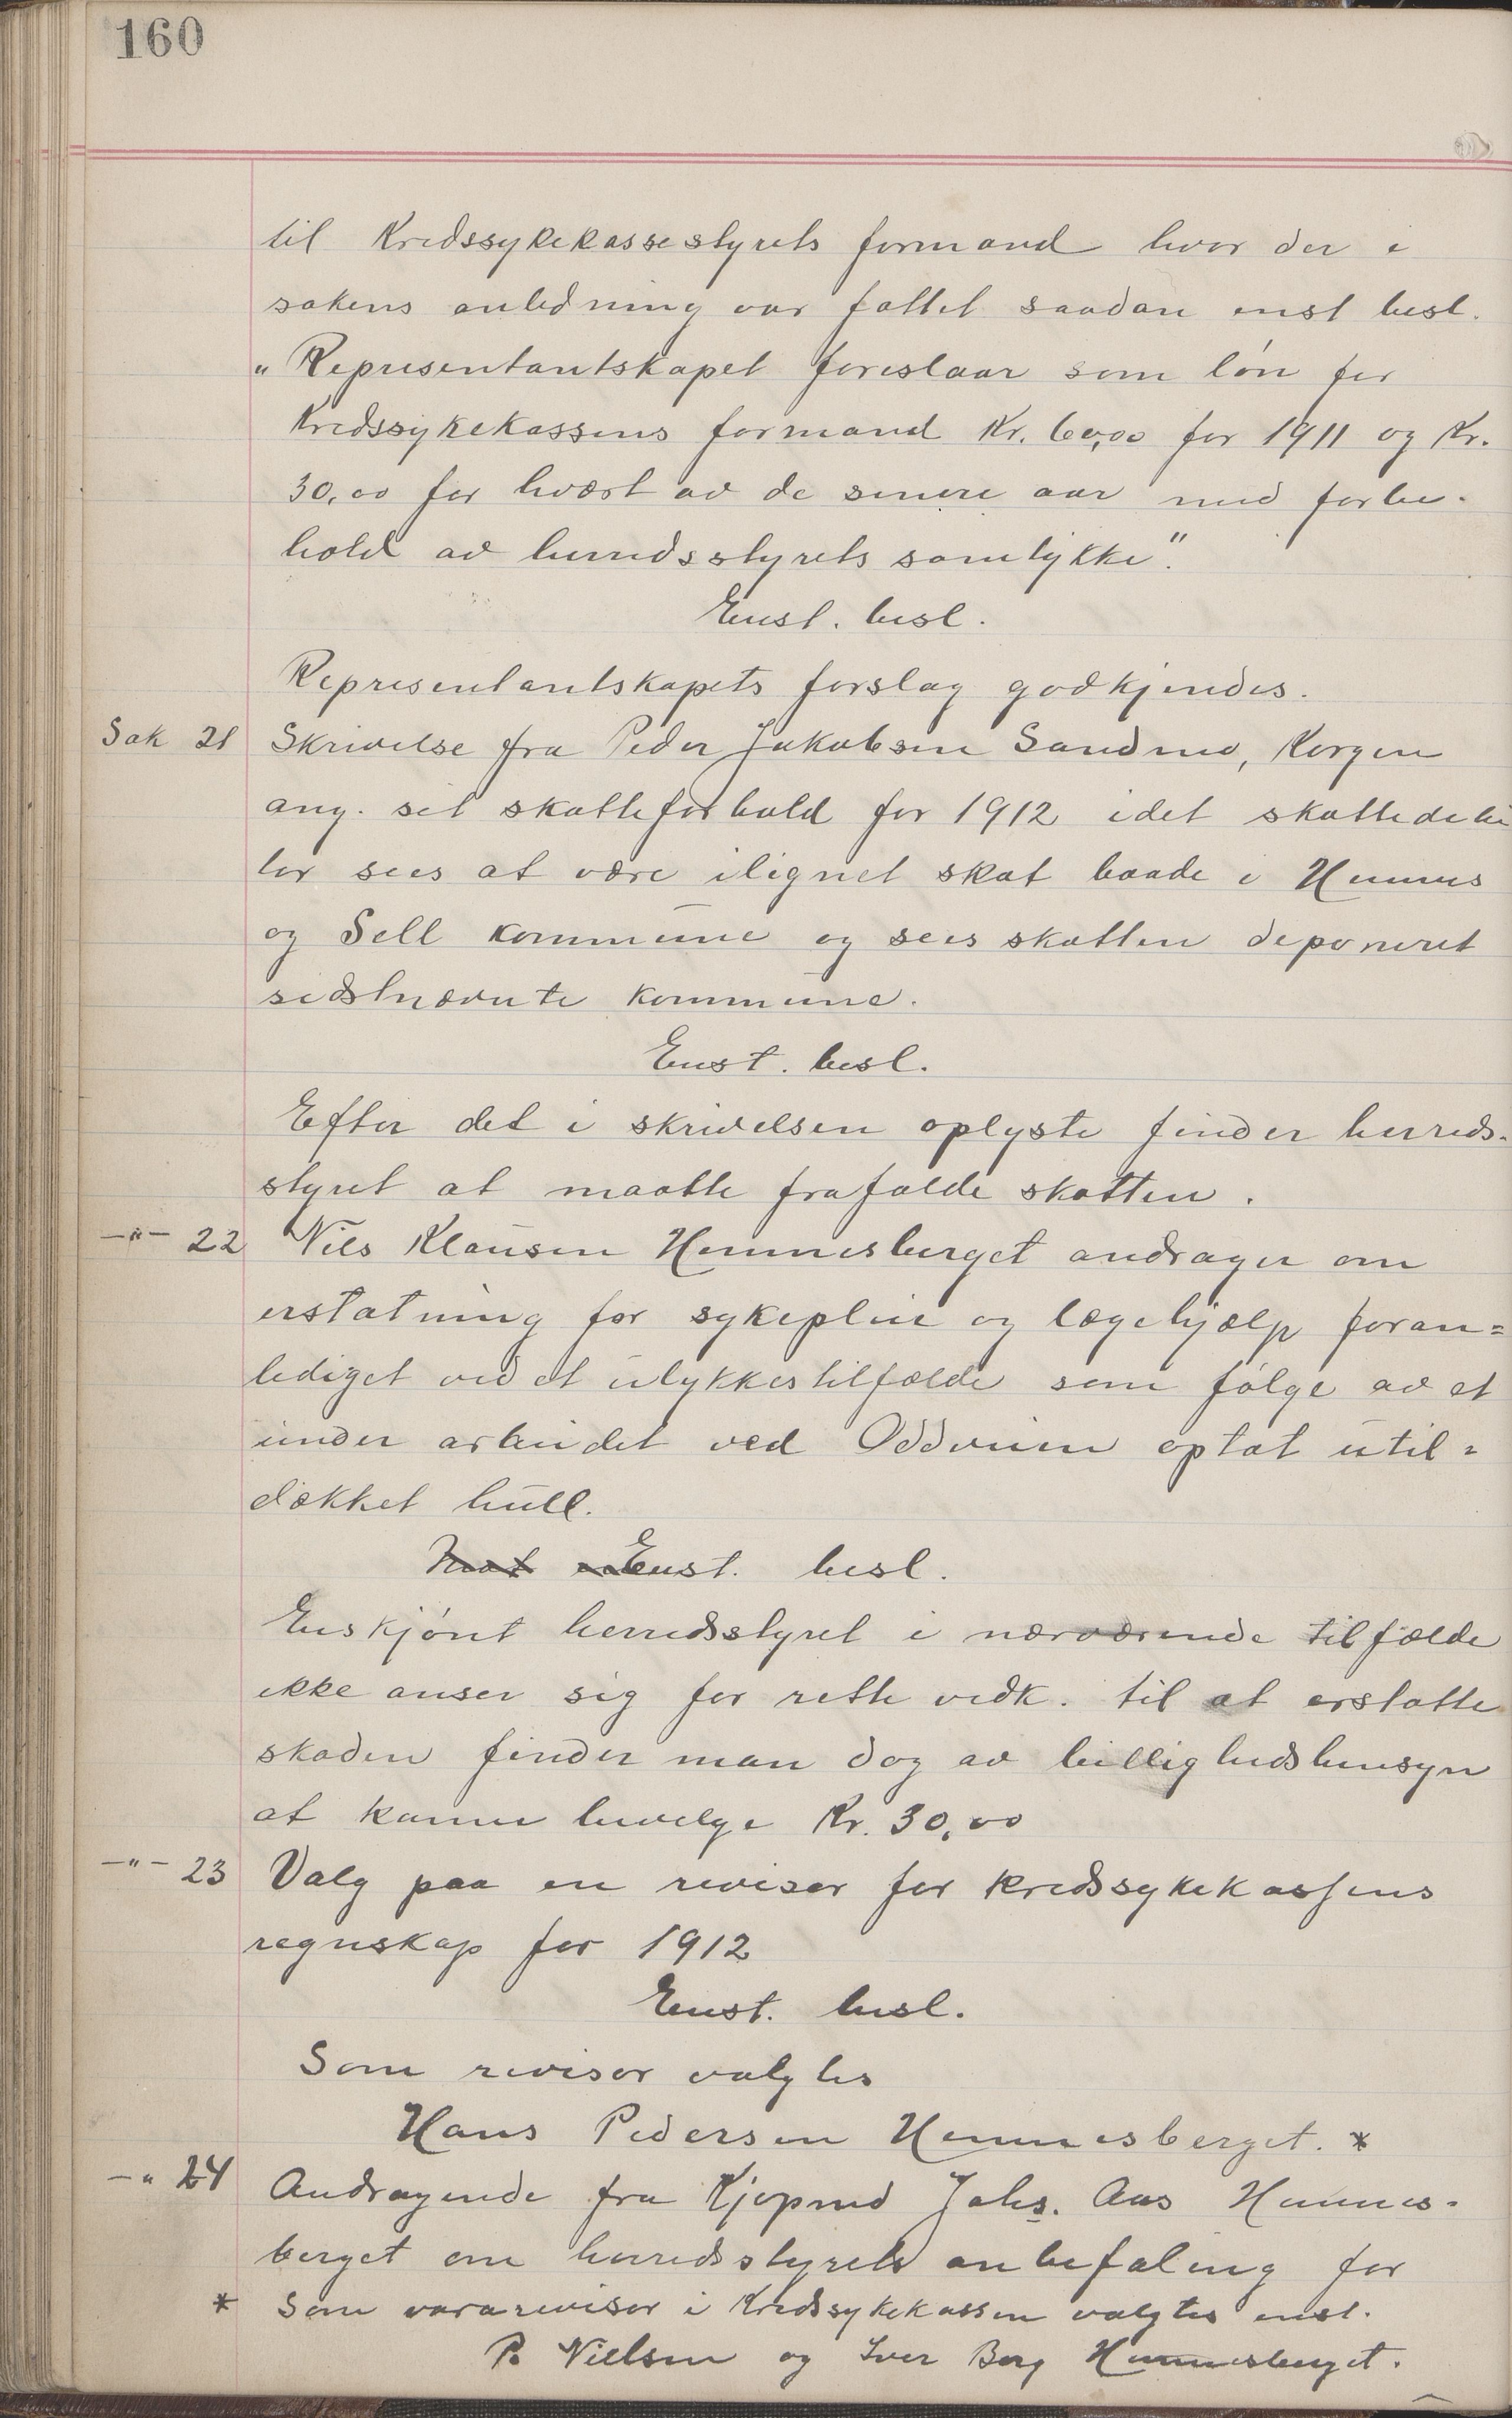 160
til Kredssykekassestyrets formand hvor der i
sakens anledning var fattet saadan enst besl.
„Representantskapet foreslaar som løn for
Kredssykekassens formand Kr. 60,00 for 1911 og Kr.
30,00 for hvært av de senere aar med forbe-
hold av herredsstyrets samtykke".
Enst. besl.
Representantskapets forslag godkjendes.
Sak 21 Skrivelse fra Peder Jakobsen Sandmo, Korgen
ang. sit skatteforhold for 1912 idet skattedebi
tor sees at være ilignet skat baade i Hemnes
og Sell kommune og sees skatten deponeret
sidstnævnte kommune.
Enst. besl.
Efter det i skrivelsen oplyste finder herreds-
styret at maatte frafalde skatten.
—"— 22 Nils Klausen Hemnesberget andrager om
erstatning for sykepleie og lægehjælp foran=
lediget ved et ulykkestilfælde som følge av et
under arbeidet ved Oddveien optat util=
dækket hull.
Mot Enst. besl.
Enskjønt herredsstyret i nærværende tilfælde
ikke anser sig for rette vedk. til at erstatte
skaden finder man dog av billighedshensyn
at kunne bevilge Kr. 30,00
—"— 23 Valg paa en revisor for kredssykekassens
regnskap for 1912
Enst. besl.
Som revisor valgtes
Hans Pedersen Hemnesberget. *
—" 24 Andragende fra Kjøpmd Johs. Aas Hemnes-
berget om herredsstyrets anbefaling for
* Som vararevisor i Kredssykekassen valgtes enst.
P. Nielsen og Iver Berg Hemnesberget.